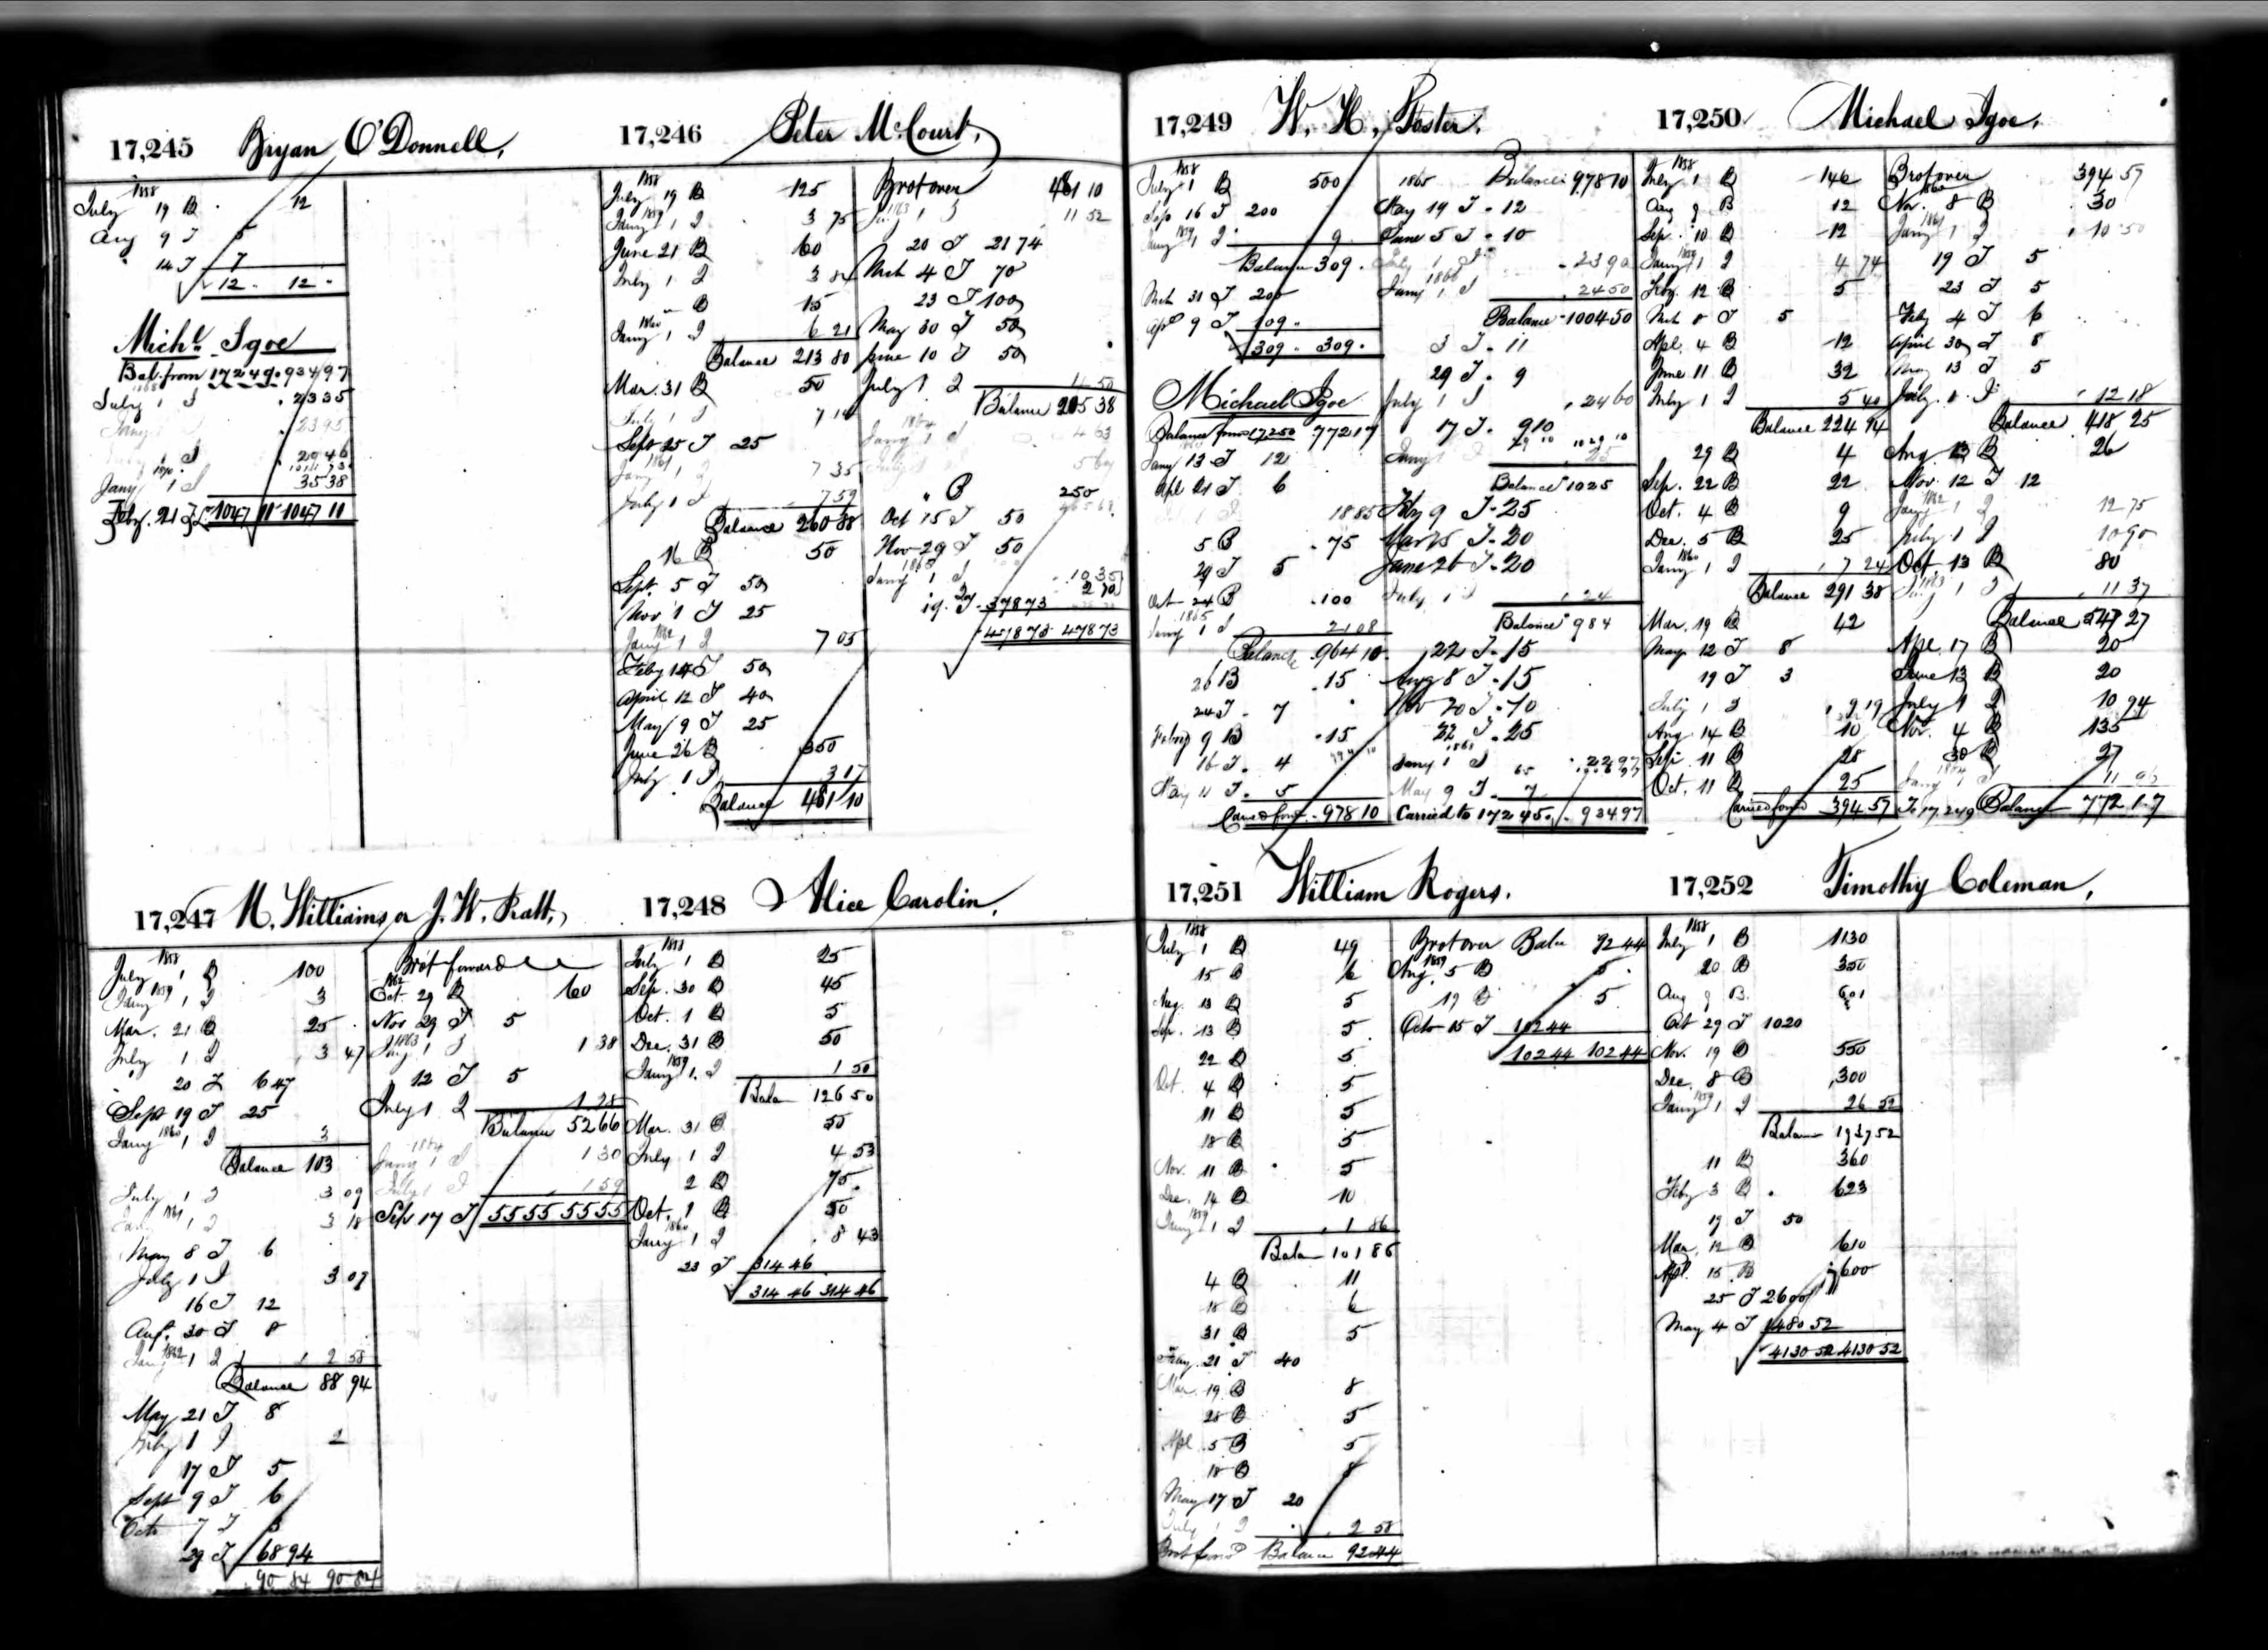 17,245 Bryan O'Donnell.
1858
July 19 B 12
Aug 9 T 5
14 T 7
12 . 12 .
Michl. Igoe
Bal. from 17249. 934 97
July 1 I . 23 35
Jany 1 I 35 38
Feby. 21 T 1047 11 1047 11
17,246 Peter McCourt,
1858
July 19 B 125
1859
Jany 1 I 3 75
June 21 B 60
July 1 I 3 84
" B 15
1860
Jany 1 I 6 21
Balance 213 80
Mar. 31 B 50
July 1 I 7 1
Sept 25 T 25
1861
Jany 1 I 7 35
July 1 I 7 59
Balance 260 88
16 B 50
Sept. 5 T 50
Nov 1 T 25
1862
Jany 1 I 7 05
Feby 14 T 50
April 12 T 40
May 9 T 25
June 26 B 350
July 1 I 3 17
Balance 481 10
Brot over 481 10
1863
Jany 1 I 11 52
20 T 21 74
Mch 4 T 70
23 T 100
May 30 T 50
June 10 T 50
July 1 I 11 50
Balance 205 38
1864
Jany 1 I 4 63
" B 250
Oct 15 T 50
Nov 29 T 50
1865
Jany 1 I 10 35
19 T 378 73
478 73 478 73
17,247 M. Williams or J. W. Pratt,
1858
July 1 B 100
1859
Jany 1 I 3
Mar. 21 B 25
July 1 I 3 47
20 T 6 47
Sept 19 T 25
1860
Jany 1 I 3
Balance 103
July 1 I 3 09
1861
Jany 1 I 3 18
May 8 T 6
July 1 I 3 07
16 T 12
Aug. 30 T 8
1862
Jany 1 I 2 58
Balance 88 94
May 21 T 8
July 1 I 2
17 T 5
Sept 9 T 6
Octo 7 T 3
29 T 68 94
90 84 90 84
Brot forward
1862
Oct. 29 B 60
Nov 29 T 5
1863
Jany 1 I 1 38
12 T 5
July 1 I 1 28
Balance 52 66
1864
Jany 1 I 1 30
July 1 I 1 59
Sep 17 T 55 55 55 55
17,248 Alice Carolin.
1858
July 1 B 25
Sep. 30 B 45
Oct. 1 B 5
Dec. 31 B 50
1859
Jany 1 I 1 50
Bala 126 50
Mar. 31 B 50
July 1 I 4 53
2 B 75
Oct. 1 B 50
1860
Jany 1 I 8 43
23 T 314 46
314 46 314 46
17,249 W. H. Foster.
1858
July 1 B 500
Sep 16 T 200
1859
Jany 1 I 9
Balance 309 .
Mch 31 T 200
Apl 9 T 109 .
309 . 309 .
Michael Igoe
Balance from 17250 772 17
Jany 13 T 12
Apl 21 T 6
18 85
5 B . 75
29 T 5
Oct 24 B . 100
1865
Jany 1 I 21 08
Balance . 964 10
26 B . 15
24 T . 7
Feby 9 B . 15
16 T . 4
May 11 T . 5
Carried forw . 978 10
1865 Balance 978 10
May 19 T . 12
June 5 T . 10
July 1 I . 23 90
1866
Jany 1 I . 24 50
Balance 1004 50
3 T . 11
29 T . 9
July 1 I . 24 60
17 T . 9 10
Jany 1 I . 25
Balance 1025
Feby 9 T . 25
Mar 15 T . 20
June 26 T . 20
July 1 I . 24
Balance 984
22 T . 15
Aug 8 T . 15
Nov 20 T . 10
22 T . 25
1868
Jany 1 I . 22 97
May 9 T . 7
Carried to 17245 . 934 97
17,250 Michael Igoe.
1858
July 1 B 146
Aug 9 B 12
Sep. 10 B 12
1859
Jany 1 I 4 74
Feby. 12 B 5
Mch 8 T 5
Apl. 4 B 12
June 11 B 32
July 1 I 5 40
Balance 224 14
29 B 4
Sep. 22 B 22
Oct. 4 B 9
Dec. 5 B 25
1860
Jany 1 I 7 24
Balance 291 38
Mar. 19 B 42
May 12 T 8
19 T 3
July 1 I 9 19
Aug. 14 B 10
Sep. 11 B 28
Oct. 11 B 25
Carried forwd 394 57
Brot over 394 57
1860
Nov. 8 B 30
1861
Jany 1 I 10 50
19 T 5
23 T 5
Feby 4 T 6
April 30 T 8
May 13 T 5
July 1 I 12 18
Balance 418 25
Aug. 13 B 26
Nov. 12 T 12
1862
Jany 1 I 12 75
July 1 I 10 90
Oct. 13 B 80
1863
Jany 1 I 11 37
Balance 547 27
Apl. 17 B 20
June 13 B 20
July 1 I 10 94
Nov. 4 B 135
30 B 27
1864
Jany 1 I 11 96
To 17,249 Balance 772 17
17,251 William Rogers.
1858
July 1 B 49
15 B 6
Aug. 13 B 5
Sep. 13 B 5
22 B 5
Oct. 4 B 5
11 B 5
18 B 5
Nov. 11 B 5
Dec. 14 B 10
1859
Jany 1 I 1 86
Balan 101 86
4 B 11
18 B 6
31 B 5
Feby. 21 T 40
Mar. 19 B 8
28 B 5
Apl. 5 B 5
18 B 8
May 17 T 20
July 1 I 2 58
Brot forwd Balance 92 44
Brot over Balce 92 44
1859
Aug. 5 B 5
19 B 5
Octo 15 T 102 44
102 44 102 44
17,252 Timothy Coleman,
1858
July 1 B 1130
20 B 350
Aug 9 B. 601
Oct 29 T 1020
Nov. 19 B 550
Dec. 8 B 300
1859
Jany 1 I 26 52
Balan 1937 52
11 B 360
Feby 3 B . 623
19 T 50
Mar. 12 B 610
Apl. 15 B 600
25 T 2600
May 4 T 1480 52
4130 52 4130 52